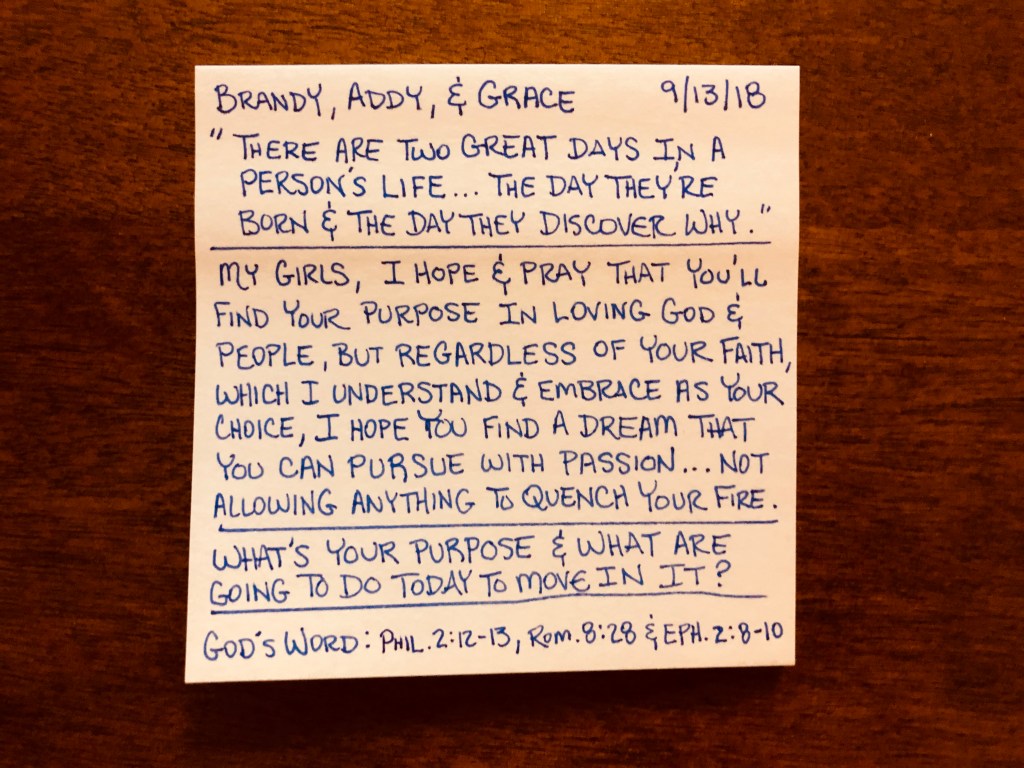 BRANDY, ADDY, & GRACE 9/13/18
"THERE ARE TWO GREAT DAYS IN A
PERSON'S LIFE... THE DAY THEY'RE
BORN & THE DAY THEY DISCOVER WHY."
MY GIRLS, I HOPE & PRAY THAT YOU'LL
FIND YOUR PURPOSE IN LOVING GOD &
PEOPLE, BUT REGARDLESS OF YOUR FAITH,
WHICH I UNDERSTAND & EMBRACE AS YOUR
CHOICE, I HOPE YOU FIND A DREAM THAT
YOU CAN PURSUE WITH PASSION... NOT
ALLOWING ANYTHING TO QUENCH YOUR FIRE.
WHAT'S YOUR PURPOSE & WHAT ARE
GOING TO DO TODAY TO MOVE IN IT?
GOD'S WORD: PHIL. 2:12-13, ROM. 8:28 & EPH. 2:8-10